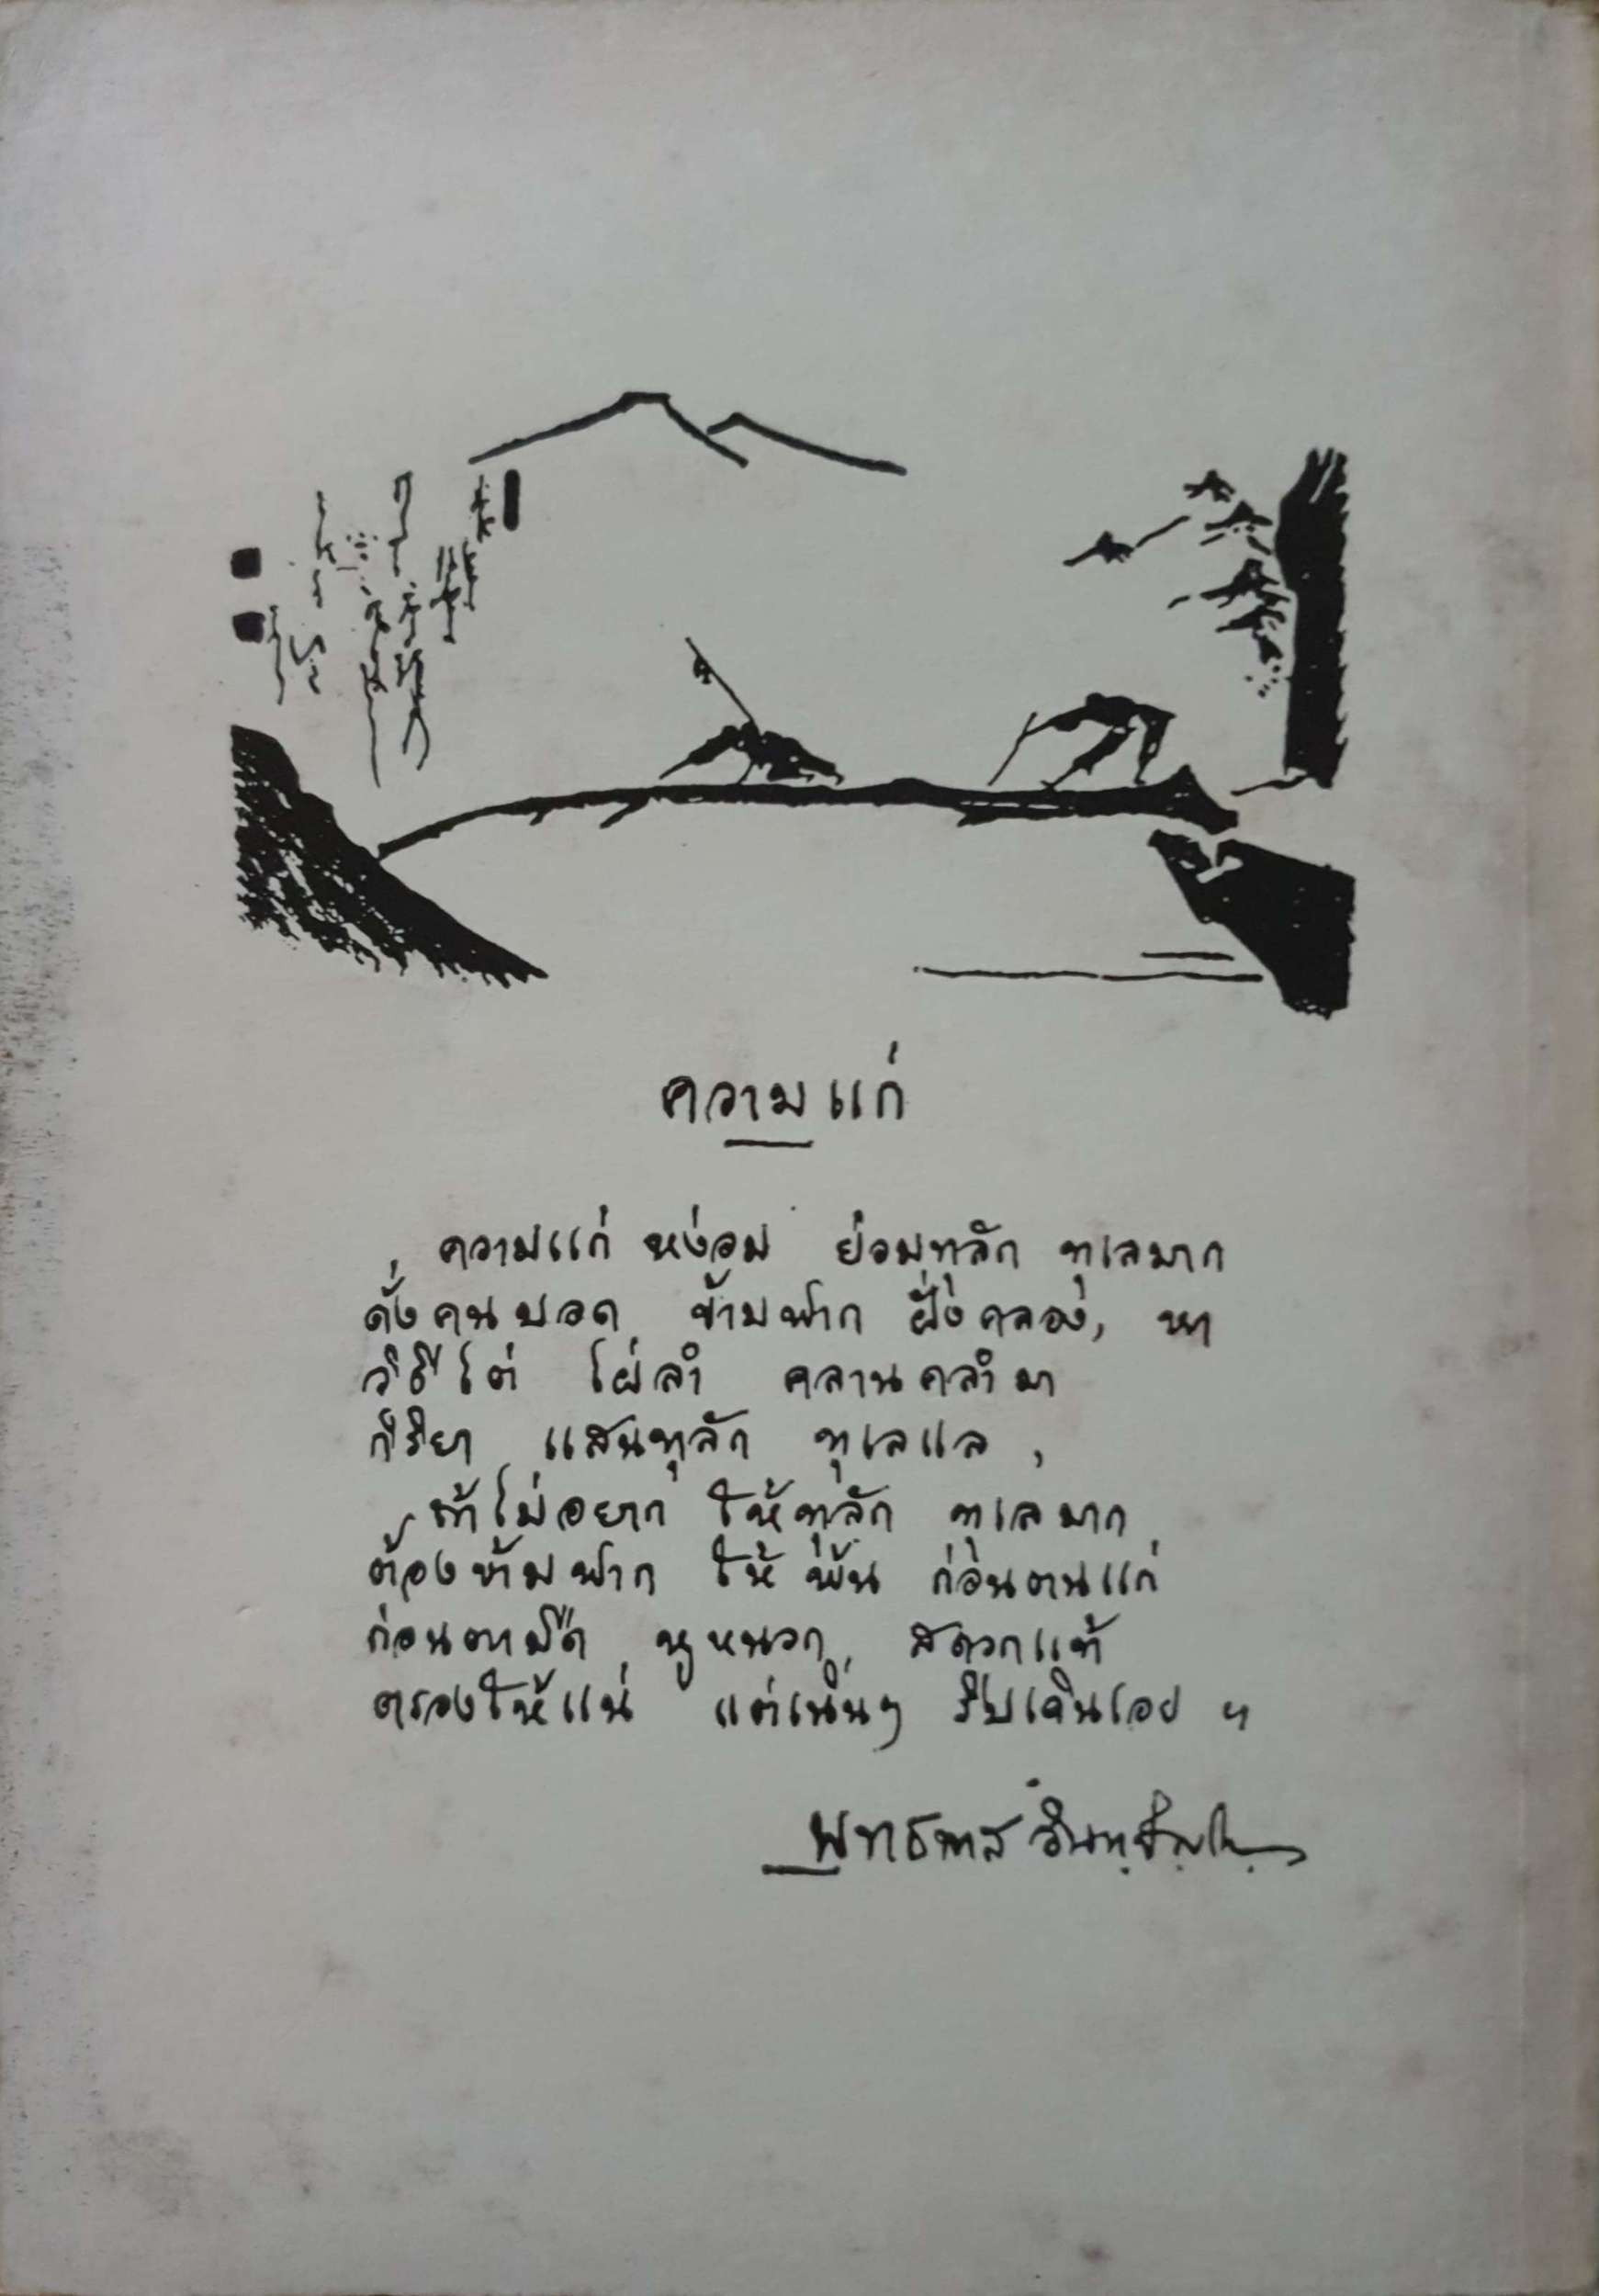 ความแก่
ความแก่ หง่อม ย่อมทุลัก ทุเลมาก
ดั่งคนบอด ข้ามฟาก ฝั่งคลอง, หา
วิธีไต่ ไผ่ลำ คลานคลำมา
กิริยา แสนทุลัก ทุเลแล,
ถ้าไม่อยาก ให้ทุลัก ทุเลมาก
ต้องข้ามฟาก ให้พ้น ก่อนตนแก่
ก่อนตามืด หูหนวก สดวกแท้
ตรองให้แน่ แต่เนิ่นๆ รีบเดินเอย ฯ
พุทธทาส อินฺทปญฺโญ